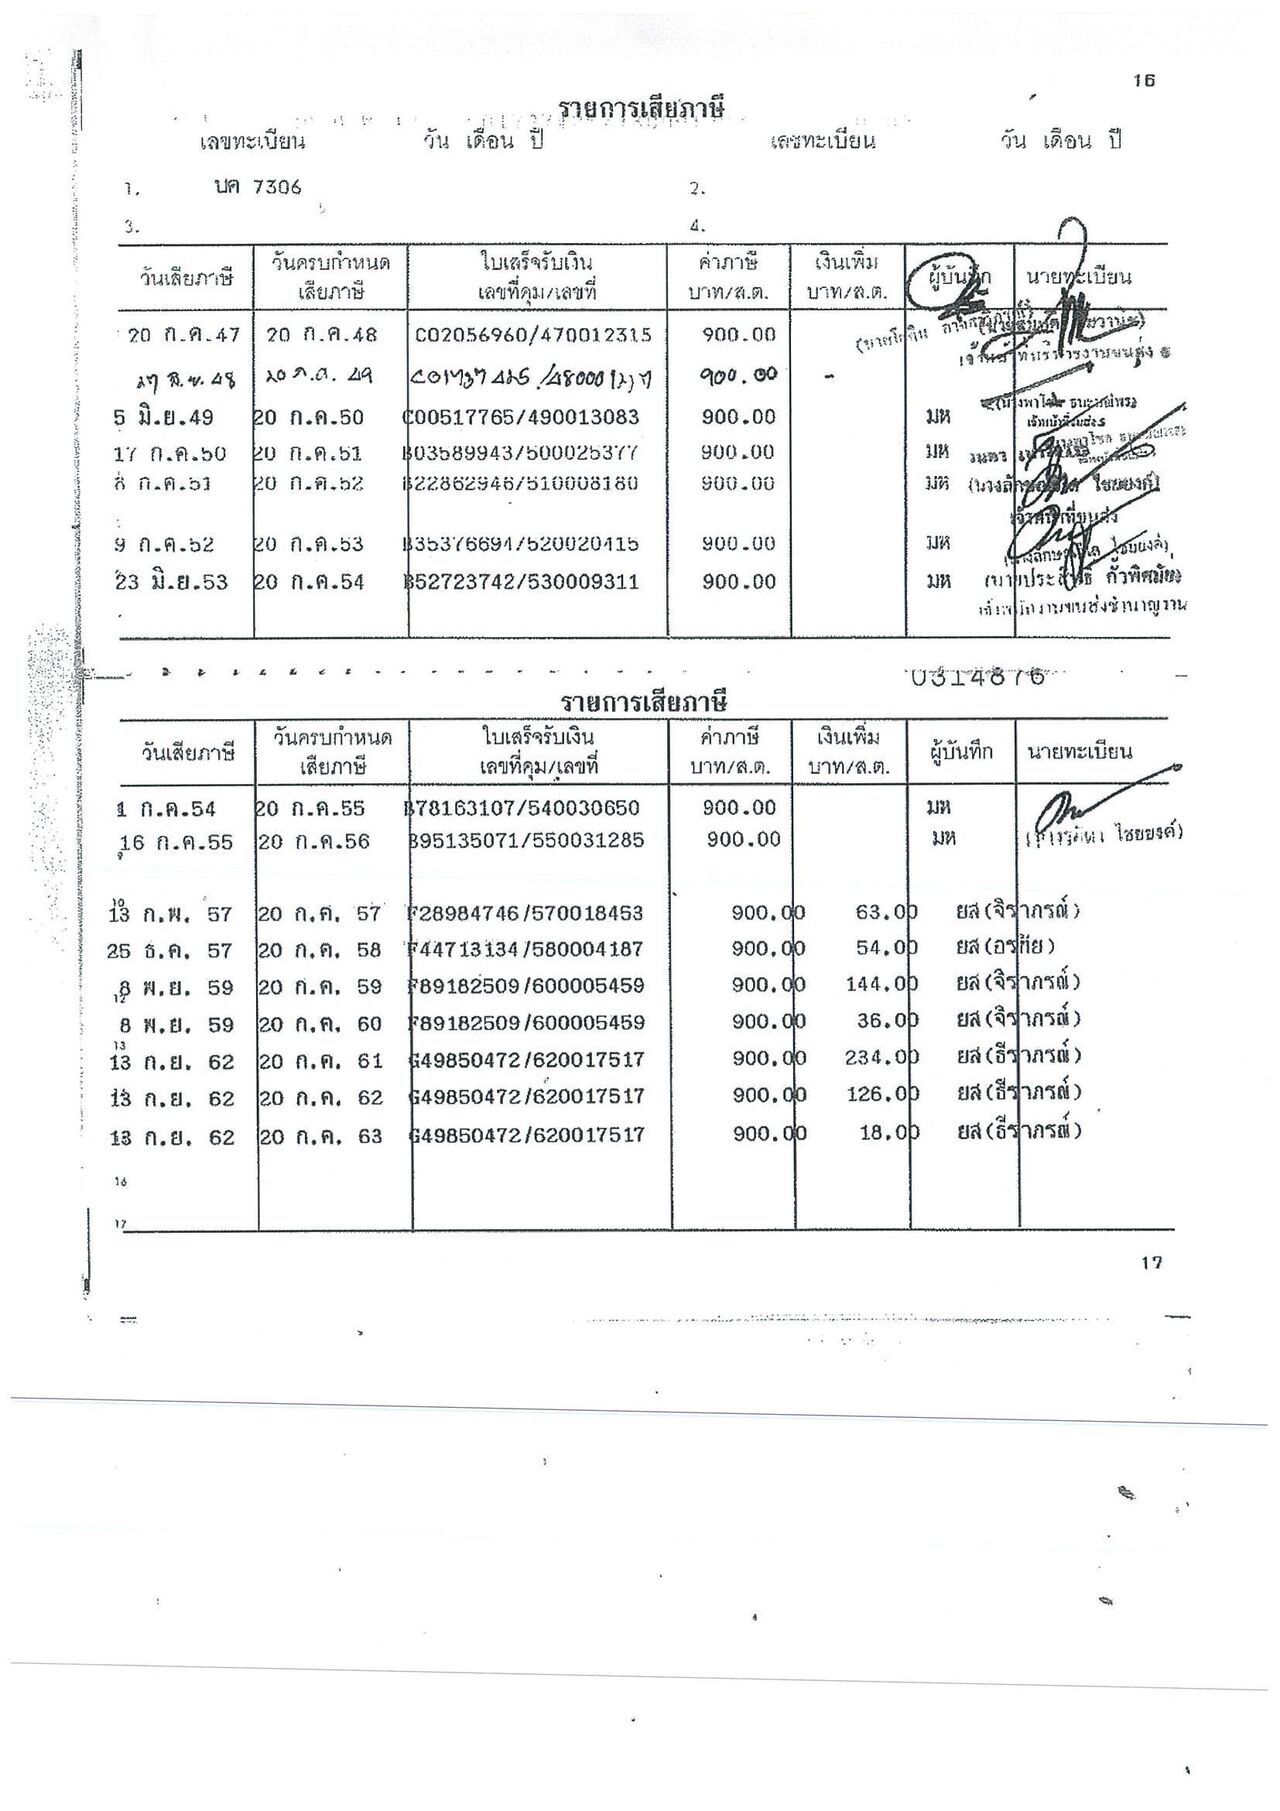 16
รายการเสียภาษี
เลขทะเบียน วัน เดือน ปี เลขทะเบียน วัน เดือน ปี
1. บค 7306 2.
3. 4.
วันเสียภาษี วันครบกำหนด เสียภาษี ใบเสร็จรับเงิน เลขที่คุม/เลขที่ ค่าภาษี บาท/ส.ต. เงินเพิ่ม บาท/ส.ต. ผู้บันทึก นายทะเบียน
20 ก.ค.47 20 ก.ค.48 C02056960/470012315 900.00
20 ก.ค. 49 900.00 -
5 มิ.ย.49 20 ก.ค.50 C00517765/490013083 900.00 มห
17 ก.ค.50 20 ก.ค.51 B03589943/500025377 900.00 มห
8 ก.ค.51 20 ก.ค.52 B22862946/510008180 900.00 มห
9 ก.ค.52 20 ก.ค.53 B35376694/520020415 900.00 มห
23 มิ.ย.53 20 ก.ค.54 B52723742/530009311 900.00 มห
0314876
รายการเสียภาษี
วันเสียภาษี วันครบกำหนด เสียภาษี ใบเสร็จรับเงิน เลขที่คุม/เลขที่ ค่าภาษี บาท/ส.ต. เงินเพิ่ม บาท/ส.ต. ผู้บันทึก นายทะเบียน
1 ก.ค.54 20 ก.ค.55 B78163107/540030650 900.00 มห
16 ก.ค.55 20 ก.ค.56 B95135071/550031285 900.00 มห
13 ก.พ. 57 20 ก.ค. 57 F28984746/570018453 900.00 63.00 ยส(จิราภรณ์)
25 ธ.ค. 57 20 ก.ค. 58 F44713134/580004187 900.00 54.00 ยส(อรทัย)
8 พ.ย. 59 20 ก.ค. 59 F89182509/600005459 900.00 144.00 ยส(จิราภรณ์)
8 พ.ย. 59 20 ก.ค. 60 F89182509/600005459 900.00 36.00 ยส(จิราภรณ์)
13 ก.ย. 62 20 ก.ค. 61 G49850472/620017517 900.00 234.00 ยส(ธีราภรณ์)
13 ก.ย. 62 20 ก.ค. 62 G49850472/620017517 900.00 126.00 ยส(ธีราภรณ์)
13 ก.ย. 62 20 ก.ค. 63 G49850472/620017517 900.00 18.00 ยส(ธีราภรณ์)
16
17
17